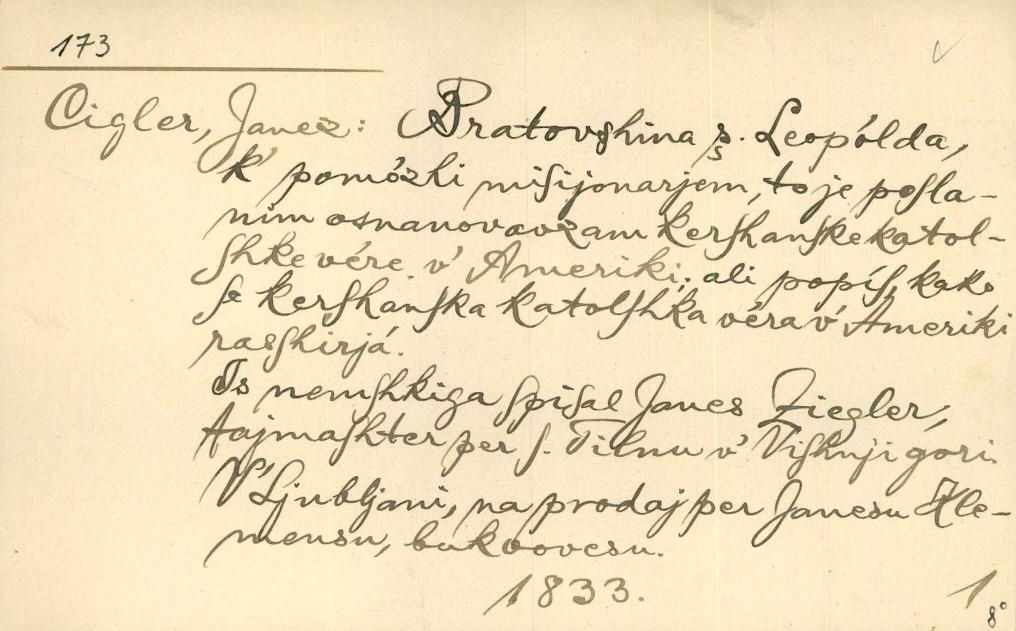 173
Cigler, Janez: Bratovſhina ſ. Leopólda,
k' pomózhi miſijonarjem, to je poſla-
nim osnanovavzam kerſhanſke katol-
ſhke vére v' Ameriki; ali popíſ, kako
ſe kerſhanſka katolſhka véra v' Ameriki
rasſhirjá.
Is nemſhkiga ſpiſal Janes Ziegler,
fajmaſhter per ſ. Tilnu v' Viſhnji gori.
V' Ljubljani, na prodaj per Janesu Kle-
mensu, bukvovesu.
1833.
1
8°